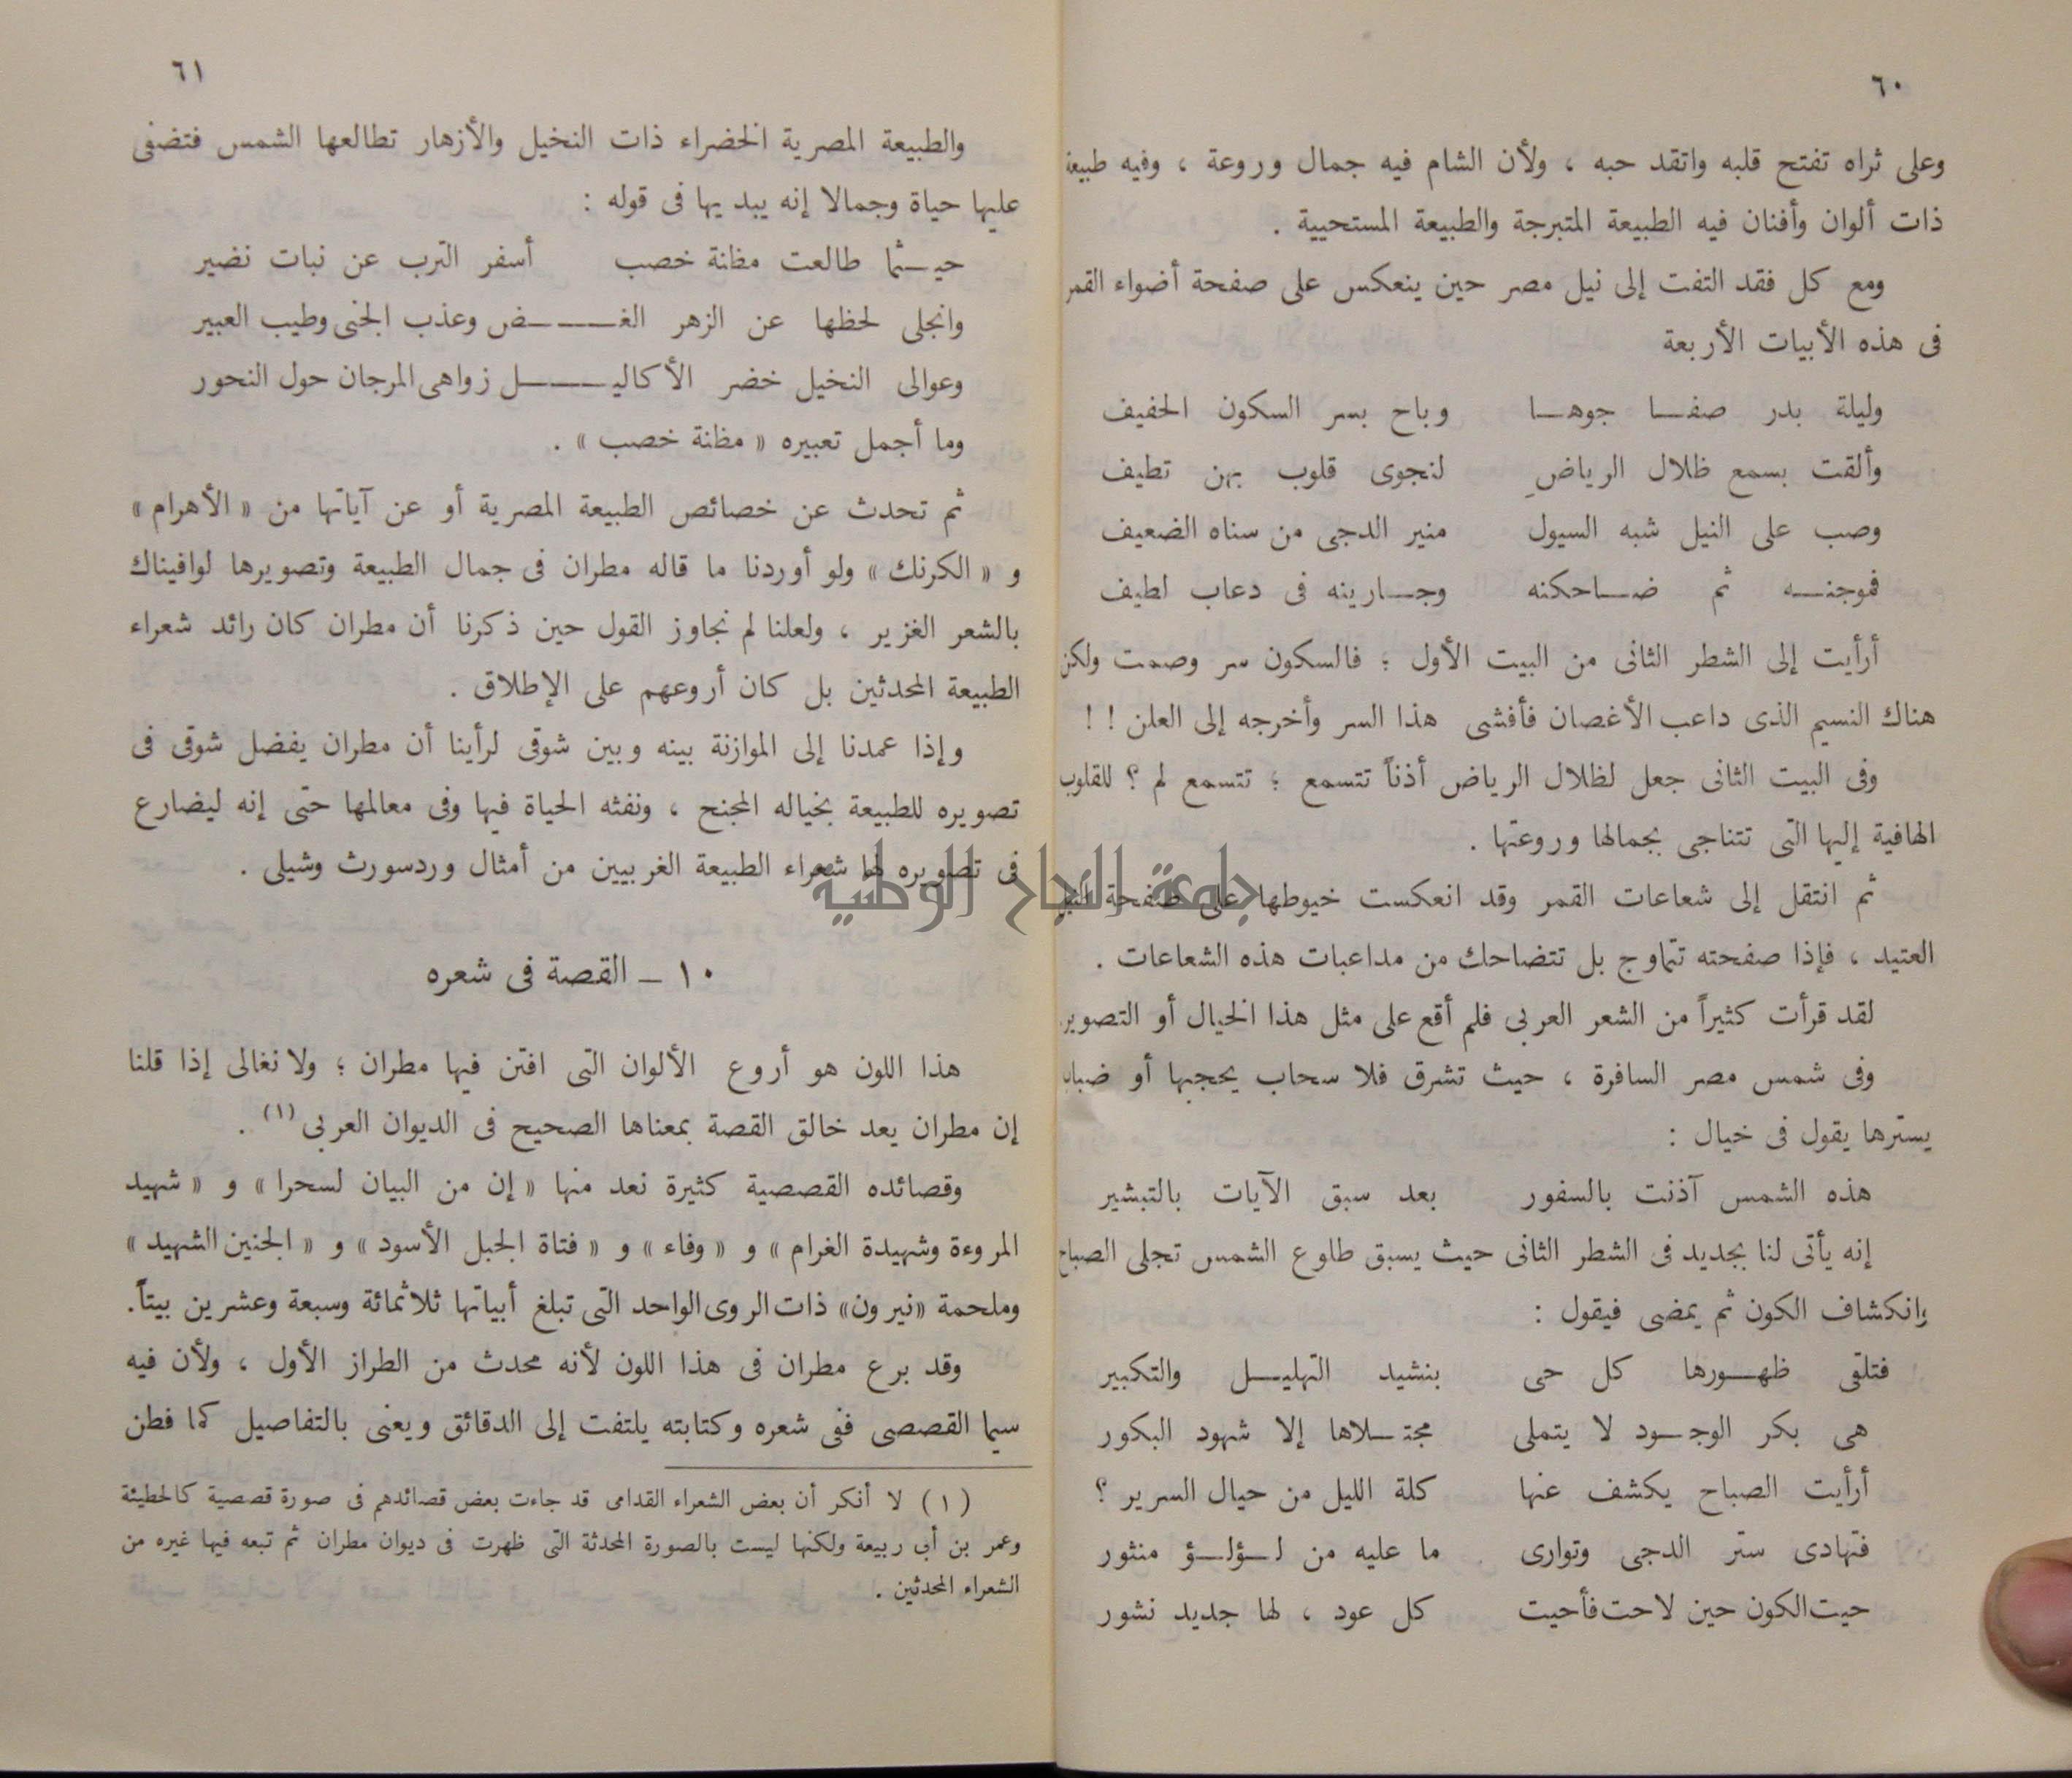 ٦٠
وعلى ثراه تفتح قلبه واتقد حبه ، ولأن الشام فيه جمال وروعة ، وفيه طبيعة
ذات ألوان وأفنان فيه الطبيعة المتبرجة والطبيعة المستحيية .
ومع كل فقد التفت إلى نيل مصر حين ينعكس على صفحة أضواء القمر
فى هذه الأبيات الأربعة
وليلة بدر صفا جوها وباح بسر السكون الحفيف
وألقت بسمع ظلال الرياضِ لنجوى قلوب بهن تطيف
وصب على النيل شبه السيول منير الدجى من سناه الضعيف
فموجنه ثم ضاحكنه وجارينه فى دعاب لطيف
أرأيت إلى الشطر الثانى من البيت الأول ؛ فالسكون سر وصمت ولكن
هناك النسيم الذى داعب الأغصان فأفشى هذا السر وأخرجه إلى العلن ! !
وفى البيت الثانى جعل لظلال الرياض أذناً تتسمع ؛ تتسمع لم ؟ للقلوب
الهافية إليها التى تتناجى بجمالها وروعتها .
ثم انتقل إلى شعاعات القمر وقد انعكست خيوطها على صفحة النيل
العتيد ، فإذا صفحته تتماوج بل تتضاحك من مداعبات هذه الشعاعات .
لقد قرأت كثيراً من الشعر العربى فلم أقع على مثل هذا الخيال أو التصوير
وفى شمس مصر السافرة ، حيث تشرق فلا سحاب يحجبها أو ضباب
يسترها يقول فى خيال :
هذه الشمس آذنت بالسفور بعد سبق الآيات بالتبشير
إنه يأتى لنا بجديد فى الشطر الثانى حيث يسبق طلوع الشمس تجلى الصباح
وانكشاف الكون ثم يمضى فيقول :
فتلقى ظهورها كل حى بنشيد التهليل والتكبير
هى بكر الوجود لا يتملى مجتلاها إلا شهود البكور
أرأيت الصباح يكشف عنها كلة الليل من حيال السرير ؟
فتهادى ستر الدجى وتوارى ما عليه من لؤلؤ منثور
حيت الكون حين لاحت فأحيت كل عود ، لها جديد نشور
٦١
والطبيعة المصرية الخضراء ذات النخيل والأزهار تطالعها الشمس فتضفى
عليها حياة وجمالا إنه يبديها فى قوله :
حيثما طالعت مظنة خصب أسفر الترب عن نبات نضير
وانجلى لحظها عن الزهر الغض وعذب الجنى وطيب العبير
وعوالى النخيل خضر الأكاليل زواهى المرجان حول النحور
وما أجمل تعبيره « مظنة خصب » .
ثم تحدث عن خصائص الطبيعة المصرية أو عن آياتها من « الأهرام »
و « الكرنك » ولو أوردنا ما قاله مطران فى جمال الطبيعة وتصويرها لوافيناك
بالشعر الغزير ، ولعلنا لم نجاوز القول حين ذكرنا أن مطران كان رائد شعراء
الطبيعة المحدثين بل كان أروعهم على الإطلاق .
وإذا عمدنا إلى الموازنة بينه وبين شوقى لرأينا أن مطران يفضل شوقى فى
تصويره للطبيعة بخياله المجنح ، ونفثه الحياة فيها وفى معالمها حتى إنه ليضارع
فى تصويره لها شعراء الطبيعة الغربيين من أمثال وردسورث وشيلى .
جامعة النجاح الوطنية
١٠ – القصة فى شعره
هذا اللون هو أروع الألوان التى افتن فيها مطران ؛ ولا نغالى إذا قلنا
إن مطران يعد خالق القصة بمعناها الصحيح فى الديوان العربى (١) .
وقصائده القصصية كثيرة نعد منها « إن من البيان لسحرا » و « شهيد
المروءة وشهيدة الغرام » و « وفاء » و « فتاة الجبل الأسود » و « الجنين الشهيد »
وملحمة «نيرون» ذات الروى الواحد التى تبلغ أبياتها ثلاثمائة وسبعة وعشرين بيتاً.
وقد برع مطران فى هذا اللون لأنه محدث من الطراز الأول ، ولأن فيه
سيما القصصى ففى شعره وكتابته يلتفت إلى الدقائق ويعنى بالتفاصيل كما فطن
(١) لا أنكر أن بعض الشعراء القدامى قد جاءت بعض قصائدهم فى صورة قصصية كالحطيئة
وعمر بن أبى ربيعة ولكنها ليست بالصورة المحدثة التى ظهرت فى ديوان مطران ثم تبعه فيها غيره من
الشعراء المحدثين .